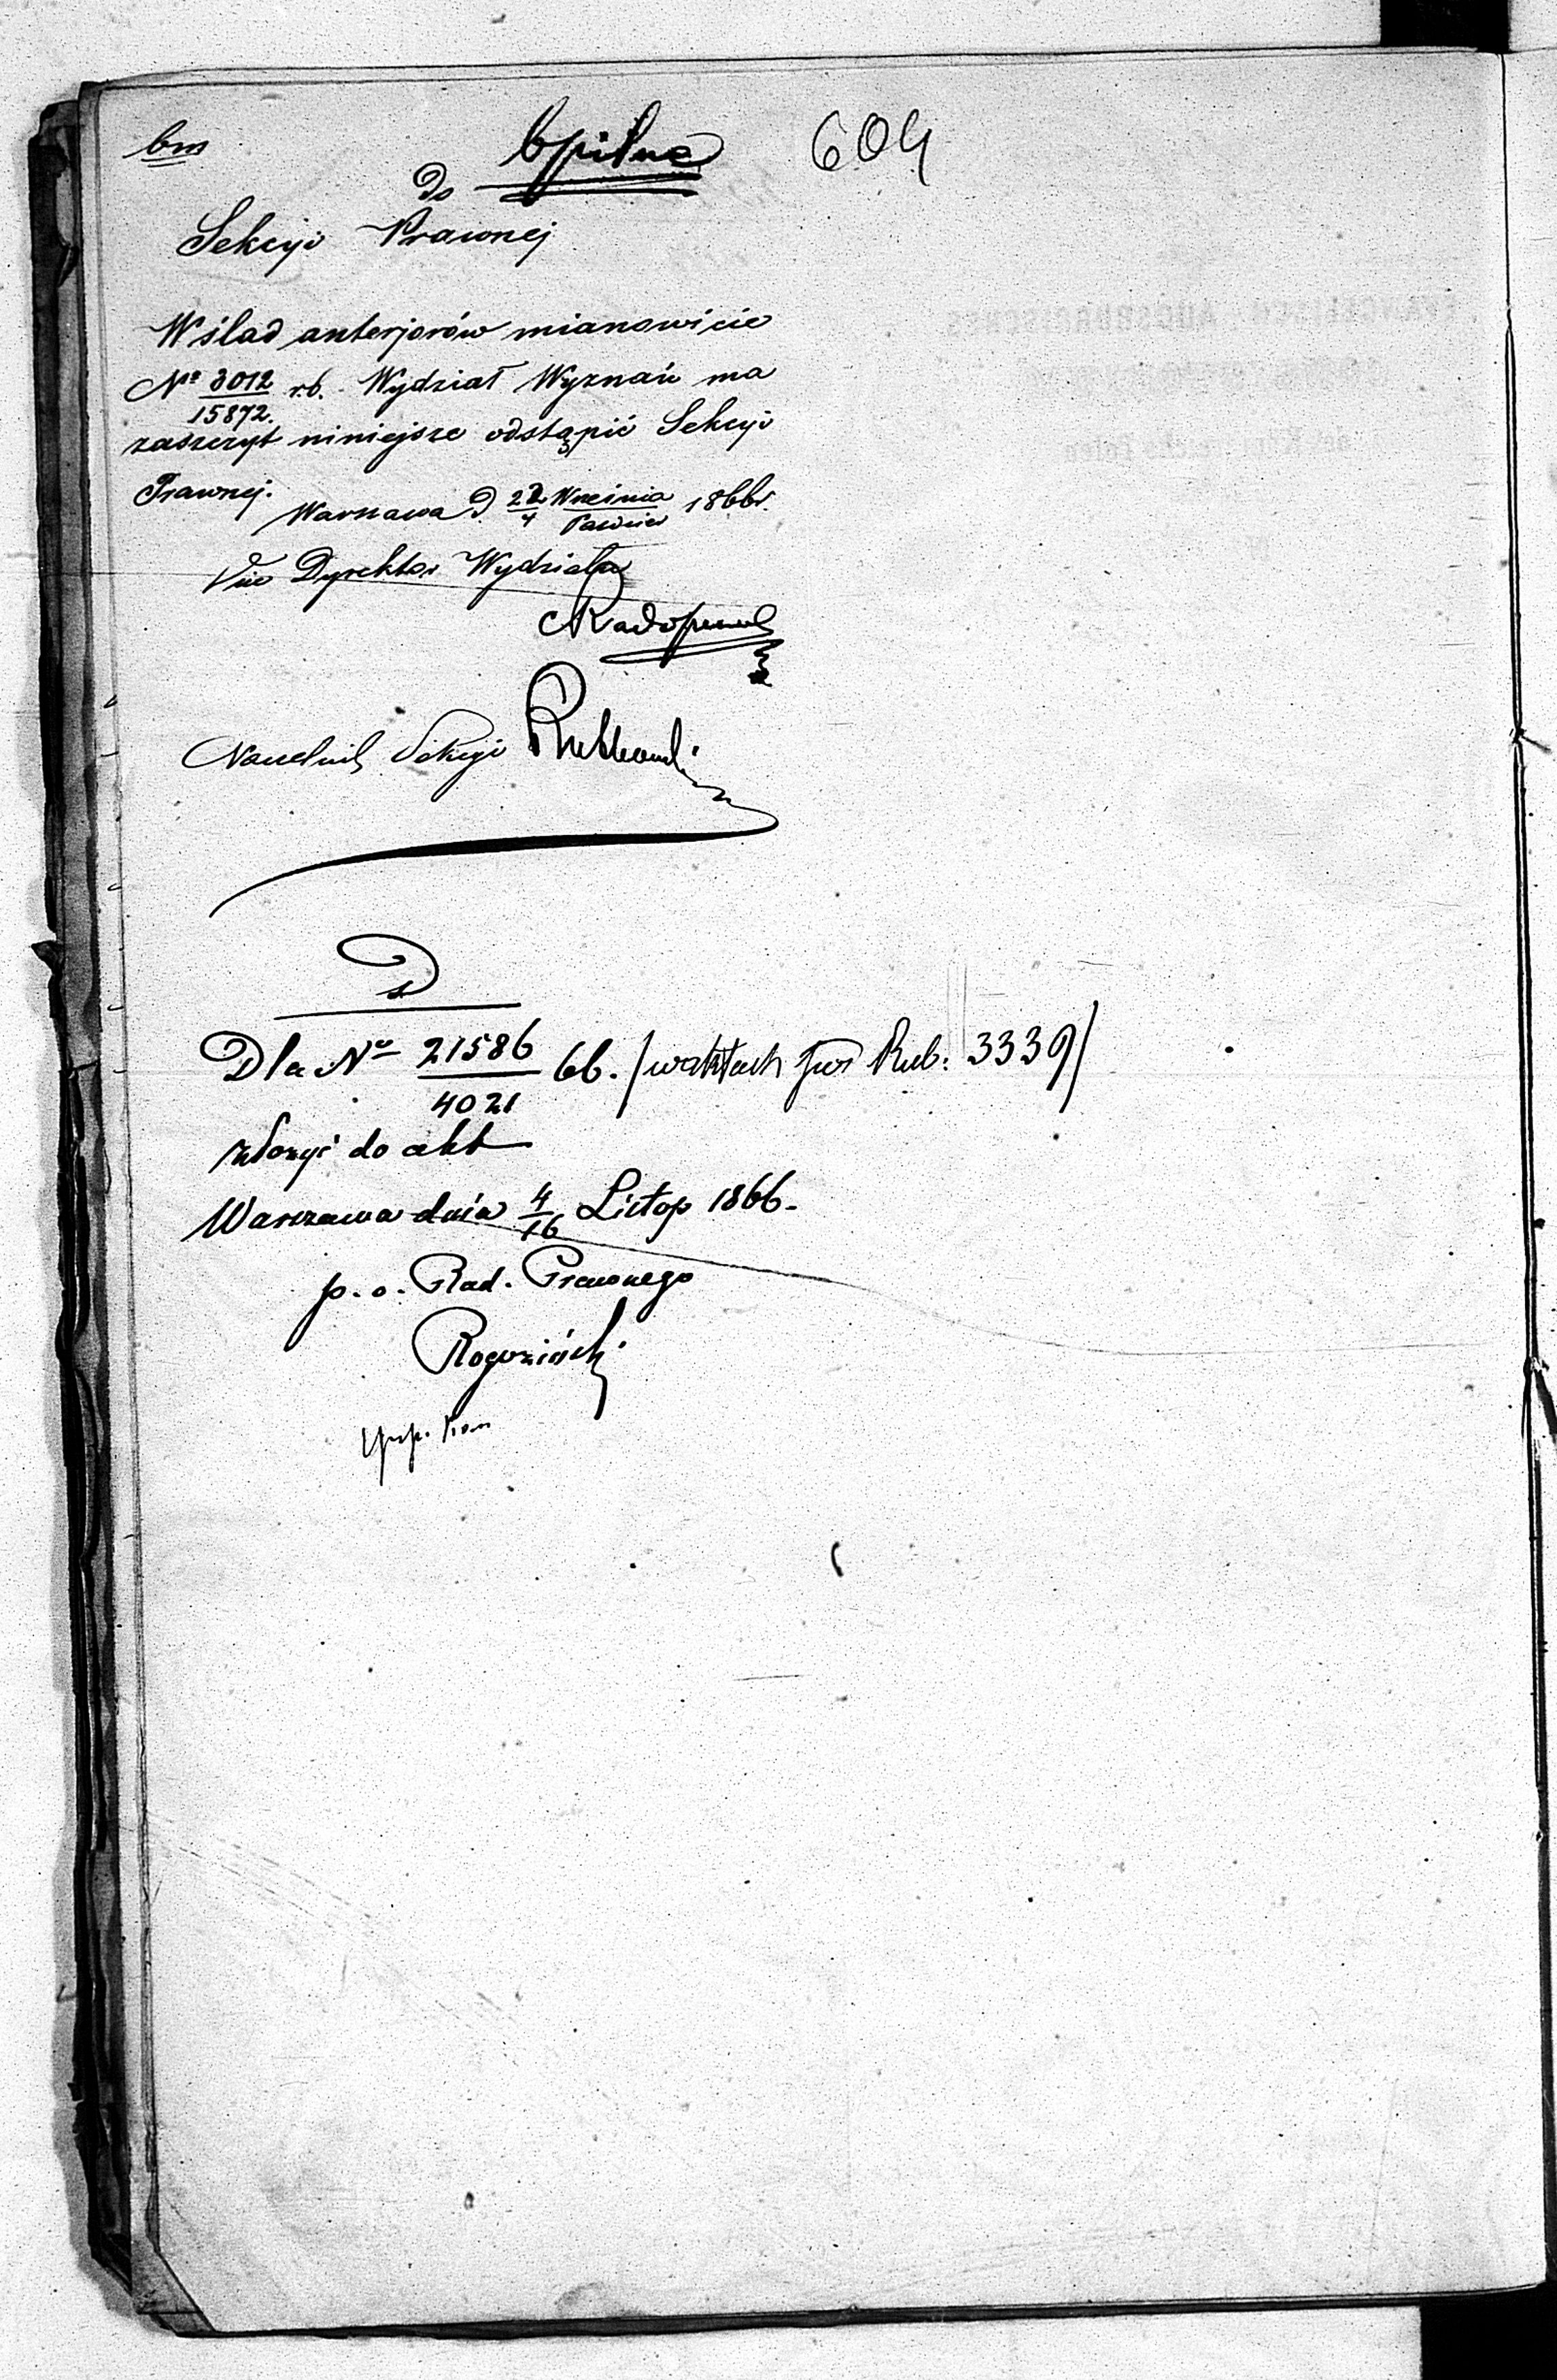 bm
bpilne 604
Do
Sekcyi Prawnej
W ślad anterjorów mianowicie
Nº 3012/15872 r.b. Wydział Wyznań ma
zaszczyt niniejsze odstąpić Sekcyi
Prawnej.
Warszawa d. 22/4 Września/Paździer 1866 r.
Vice Dyrektor Wydziału
Naczelnik Sekcyi
Ds
Dla Nº 21586/4021 66. / w aktach Rub: 3339/
złożyć do akt
Warszawa dnia 4/16 Listop 1866.
p. o. Rad. Prawnego
Rogoziński